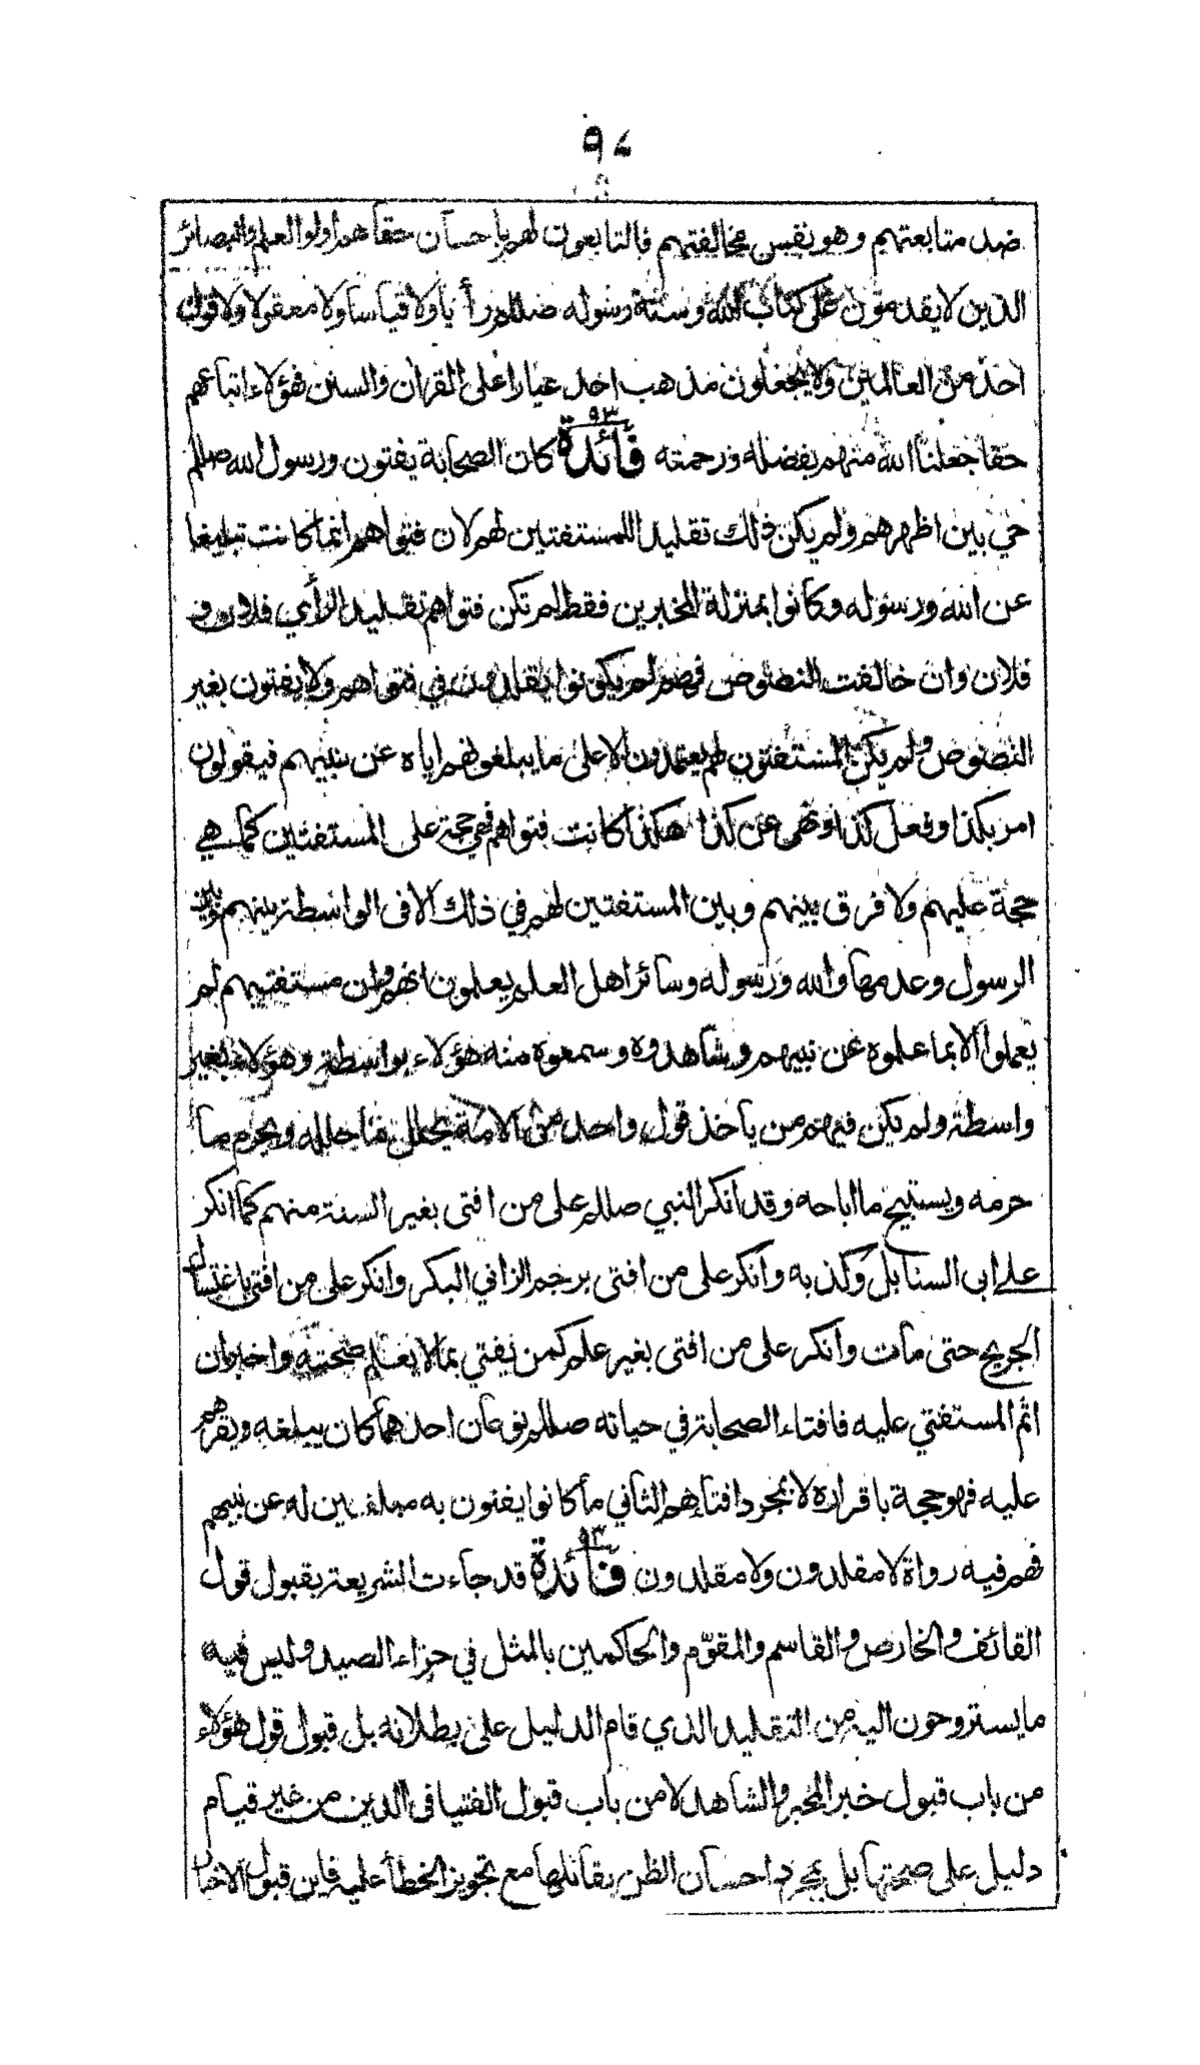 ٩٤
ضد متابعتهم وهو نفس مخالفتهم فالتابعون لهم باحسان حقا هم اولوا العلم والبصائر
الذين لا يقدمون على كتاب الله وسنة رسوله صللم رأيا ولا قياسا ولا معقولا ولا قول
احد من العالمين ولا يجعلون مذهب احد عيارا على القران والسنن فهؤلاء اتباعهم
حقا جعلنا الله منهم بفضله ورحمته فائدة ٩٣ كان الصحابة يفتون ورسول الله صللم
حي بين اظهرهم ولم يكن ذلك تقليدا للمستفتين لهم لان فتواهم انما كانت تبليغا
عن الله ورسوله وكانوا بمنزلة المخبرين فقط لم تكن فتواهم تقليدا لرأي فلان و
فلان وان خالفت النصوص فهم لم يكونوا يقلدون في فتواهم ولا يفتون بغير
النصوص ولم يكن المستفتون لهم يعتمدون الا على ما يبلغونهم اياه عن نبيهم فيقولون
امر بكذا وفعل كذا ونهى عن كذا هكذا كانت فتواهم فهي حجة على المستفتين كما هي
حجة عليهم ولا فرق بينهم وبين المستفتين لهم في ذلك الا في الواسطة بينهم وبين
الرسول وعدمها والله ورسوله وسائر اهل العلم يعلمون انهم وان مستفتيهم لم
يعملوا الا بما علموه عن نبيهم وشاهدوه وسمعوه منه هؤلاء بواسطة وهؤلاء بغير
واسطة ولم يكن فيهم من يأخذ قول واحد من الامة يحلل ما حلله ويحرم ما
حرمه ويستبيح ما اباحه وقد انكر النبي صللم على من افتى بغير السنة منهم كما انكر
على ابي السنابل وكذبه وانكر على من افتى برجم الزاني البكر وانكر على من افتى باغتسال
الجريح حتى مات وانكر على من افتى بغير علم كمن يفتي بما لا يعلم صحته واخبر ان
اثم المستفتي عليه فافتاء الصحابة في حياته صللم نوعان احدهما كان يبلغه ويقرهم
عليه فهو حجة باقراره لا بمجرد افتاءهم الثاني ما كانوا يفتون به مبلغين له عن نبيهم
فهم فيه رواة لا مقلدون ولا مقلدون فائدة ٩٣ قد جاءت الشريعة بقبول قول
القائف والخارص والقاسم والمقوّم والحاكمين بالمثل في جزاء الصيد وليس فيه
ما يستروحون اليه من التقليد الذي قام الدليل على بطلانه بل قبول قول هؤلاء
من باب قبول خبر المخبر والشاهد لا من باب قبول الفتيا في الدين من غير قيام
دليل على صحتها بل بمجرد احسان الظن بقائلها مع تجويز الخطأ عليه فاين قبول الاخبار